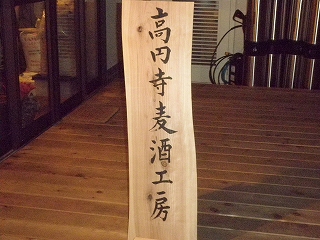 高円寺麦酒工房